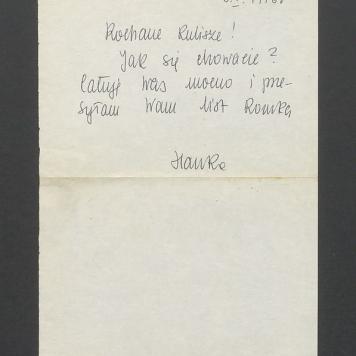 Kochane Rulisze!
Jak się chowacie?
Całuję Was mocno i prze-
syłam Wam list Romka
Hanka